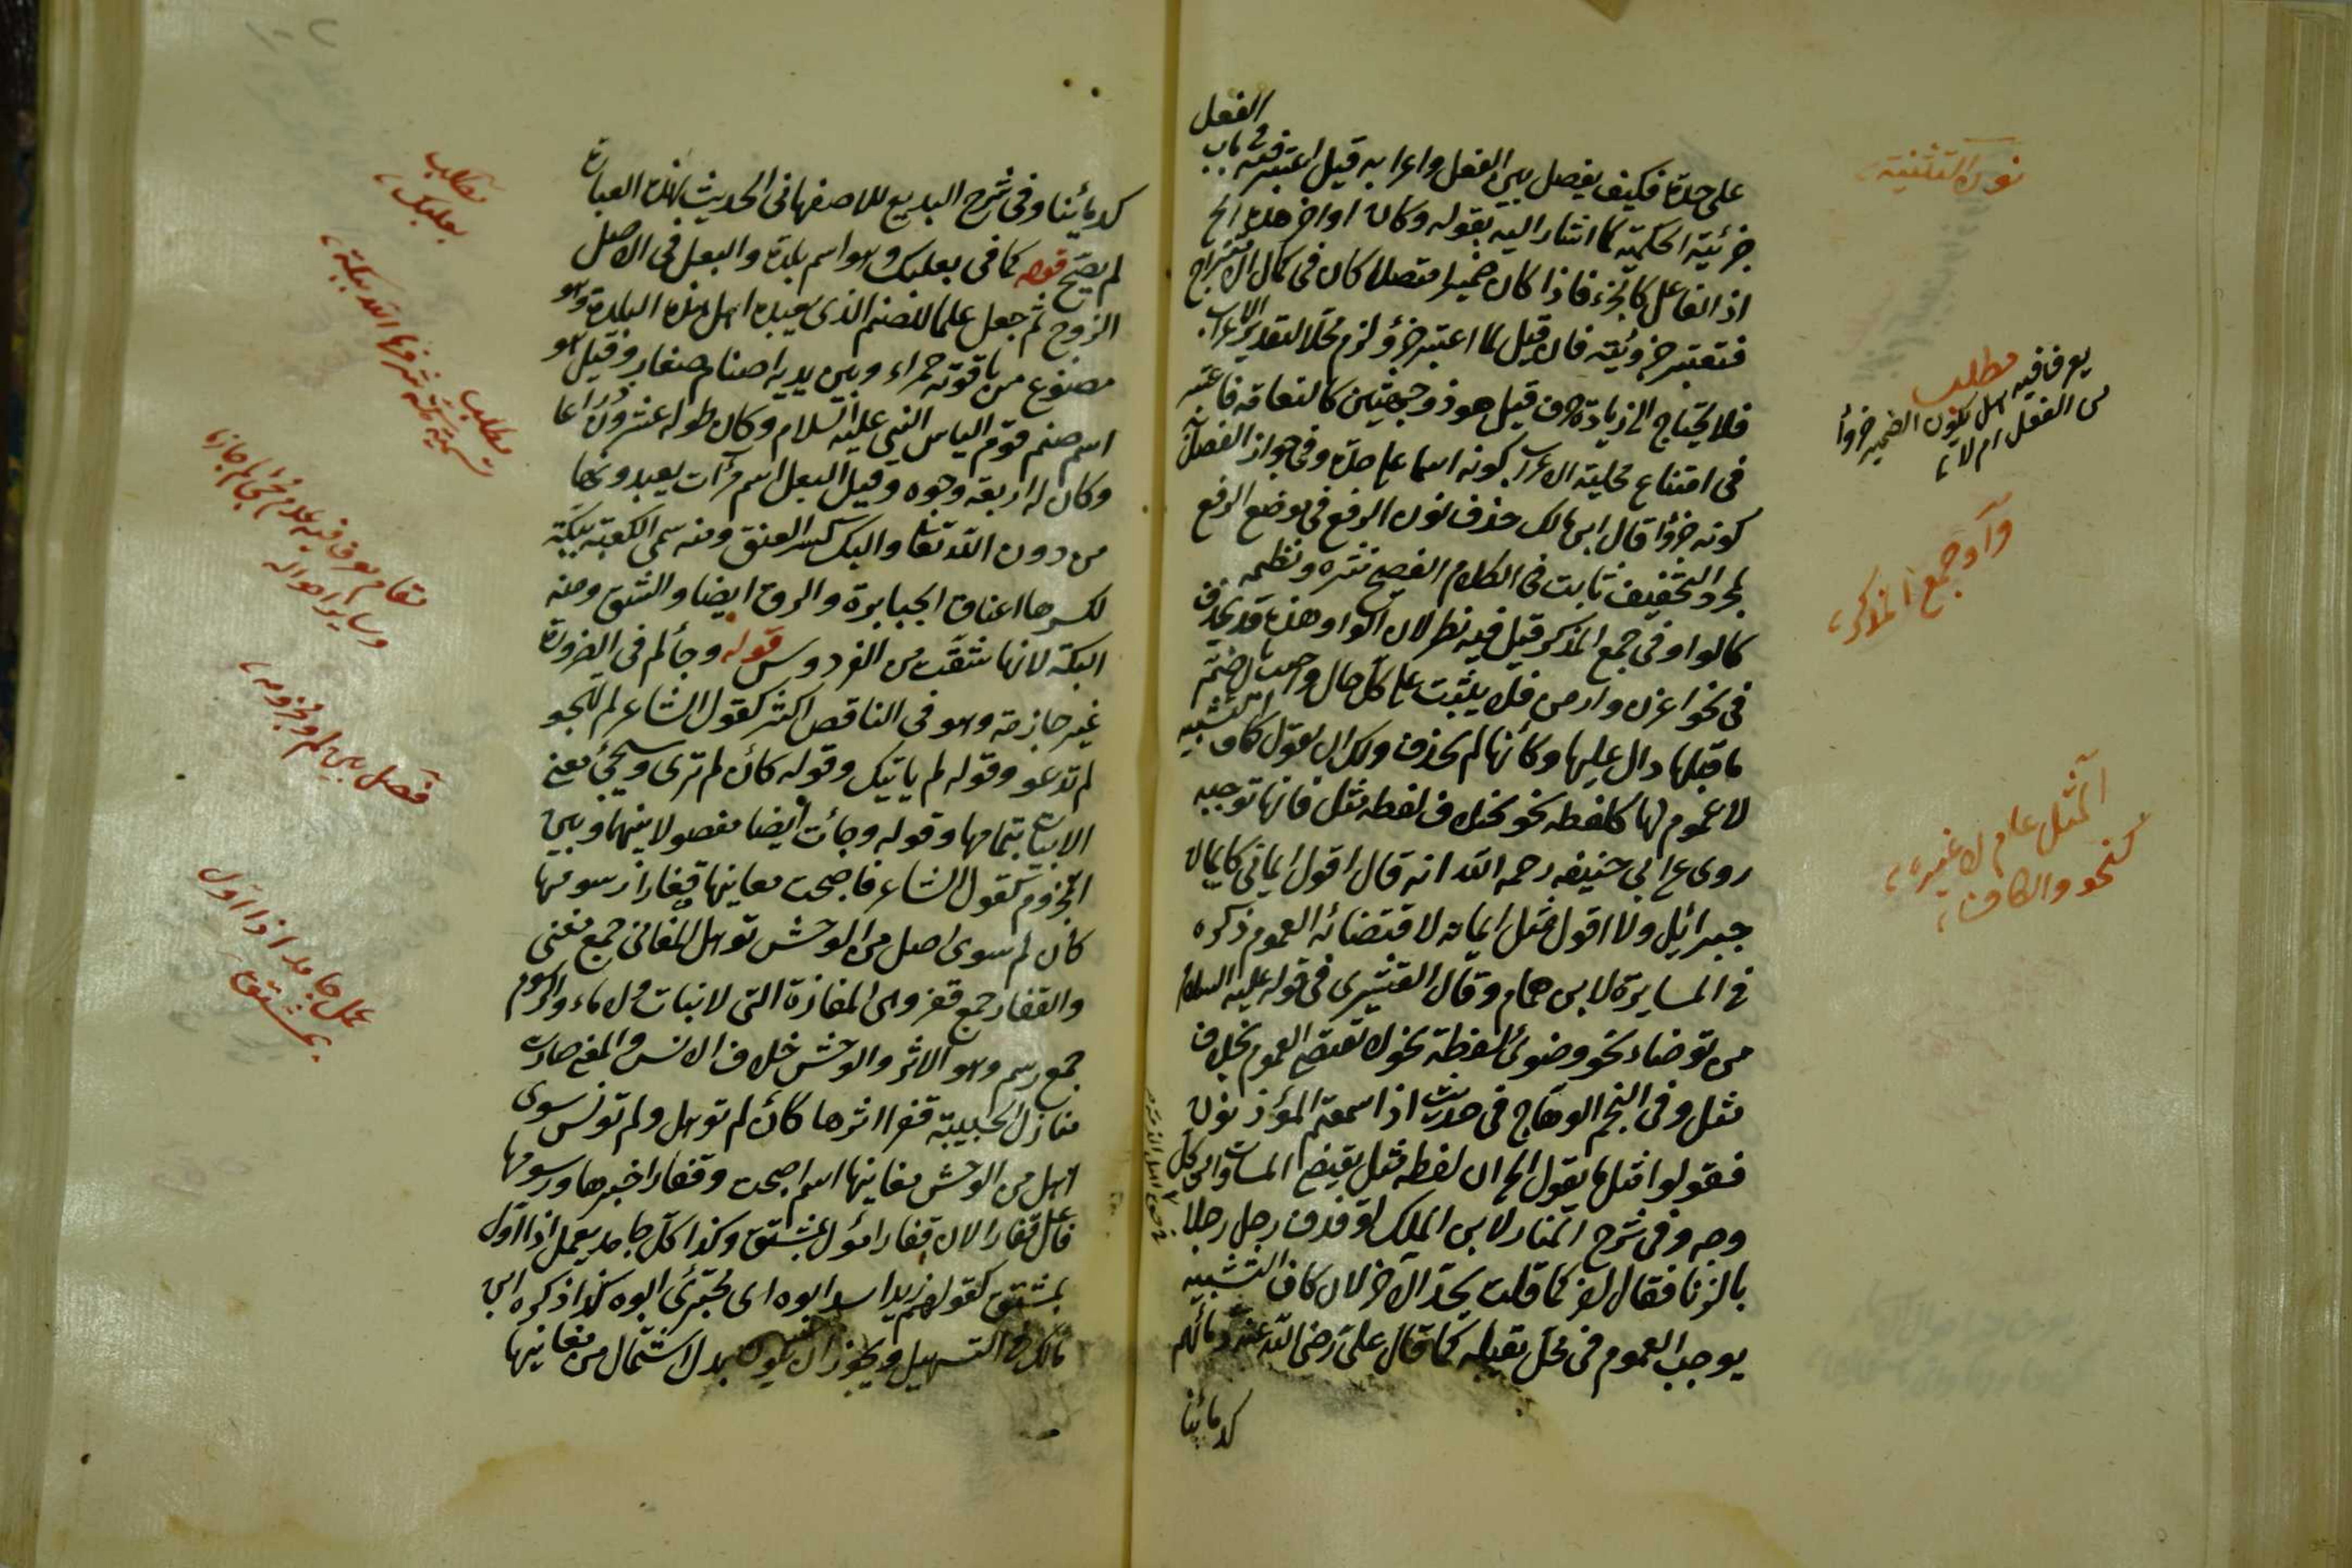 الفعل
على حدة فكيف يفصل بين الفعل واعرابه قيل اعتبر فيه باب
جزئية الحكمية كما اشار اليه بقوله وكان اواخر هذه الخ
اذ الفاعل كالجزء فاذا كان ضميرا متصلا كان فى كمال الامتزاج
فتعتبر جزوئيته فان قيل لما اعتبر جزؤ لزم محلا لتقدير الاعراب
فلا يحتاج الى زيادة حرف قيل هو ذو جهتين كالتعاقه فاعتبر
فى امتناع محلية الاعراب كونه اسما على حدة وفى جواز الفصل
كونه جزؤا قال ابن مالك حذف نون الرفع فى موضع الرفع
لمجرد التخفيف ثابت فى الكلام الفصيح نثره ونظمه
كالواو فى جمع المذكر قيل فيه نظر لان الواو هذه قد يحذف
فى نحو اغزن وارمن فلا يثبت على كل حال واجيب الضم
ما قبلها دال عليها وكأنها لم يحذف ولك ان تقول كاف التشبيه
لا عموم لها كلفظه نحو بخلاف لفظه مثل فانها توجبه
روى عن ابى حنيفه رحمه الله انه قال اقول ايمانى كايمان
جبرائيل ولا اقول مثل ايمانه لاقتضائه العموم ذكره
فى المسايرة لابن همام وقال القشيرى فى قوله عليه السلام
من توضاء نحو وضوئى لفظة نحو لا تقتضى العموم بخلاف
مثل وفى النجم الوهاج فى حديث اذا سمعتم المؤذنون
فقولوا مثل ما يقول الخ ان لفظه مثل يقتضى المساواة من كل
وجه وفى شرح المنار لابن الملك لو قذف رجل رجلا
بالزنا فقال اخر كما قلت يحد الآخر لان كاف التشبيه
يوجب العموم فى محل يقبله كما قال على رضى الله عنه دمائهم
كدمائنا
نون التثنية
مطلب
يعرف فيه هل يكون الضمير جزوأ
من الفعل ام لا
واو جمع المذكر
المثل عام لا غيره
كنحو والكاف
كدمائنا وفى شرح البديع للاصفهانى الحديث بهذه العبارة
لم يصح قوله كما فى بعلبك وهو اسم بلدة والبعل فى الاصل
الزوج ثم جعل علما للصنم الذى يعبده اهل هذه البلدة وهو
مصنوع من ياقوته حمراء وبين يديه اصنام صغار وقيل هو
اسم صنم قوم الياس النبى عليه السلام وكان طوله عشرون ذراعا
وكان له اربعة وجوه وقيل البعل اسم مرآت يعبدونها
من دون الله تعا والبك كسر العنق ومنه سمى الكعبة ببكة
لكسرها اعناق الجبابرة والدق ايضا والشق ومنه
البكة لانها شقت من الفردوس قوله وجاء لم فى الضرورة
غير جازمة وهو فى الناقص اكثر كقول الشاعر لم تهجو
لم تدعو وقوله لم ياتيك وقوله كأن لم ترى وسيجئ معنى
الابيات بتمامها وقوله وجائت ايضا مفصولا بينها وبين
المجزوم كقول الشاعر فاصبحت مغانيها قفارا رسومها
كأن لم سوى اهل من الوحش توهل المغانى جمع مغنى
والقفار جمع قفر وهى المفازة التى لا نبات ولا ماء والرسوم
جمع رسم وهو الاثر والوحش خلاف الانس والمعنى صارت
منازل الحبيبة قفرا اثرها كأن لم توهل ولم تونس سوى
اهل من الوحش مغانيها اسم اصبحت وقفارا خبرها ورسومها
فاعل قفارا لان قفارا مؤل بمشتق وكذا كل جامد يعمل اذا اول
بمشتق كقولهم زيد اسد ابوه اى مجترئ ابوه كذا ذكره ابن
مالك فى التسهيل ويجوز ان يكون بدل اشتمال من مغانيها
مطلب
بعلبك
مطلب
تسمية مكة شرفها الله ببكة
مقام يعرف فيه عدم مجئ لم جازمة
وساير احواله
فصل بين لم ومجزومه
عمل جامد اذا اول
بمشتق